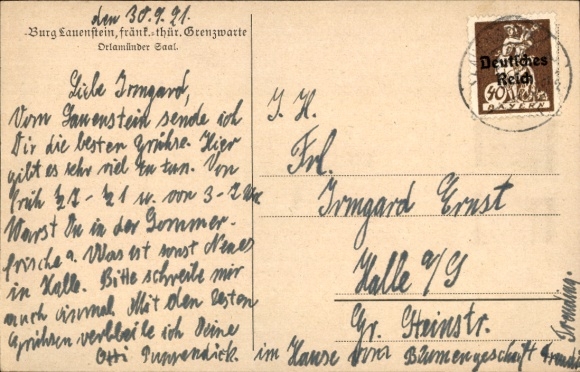 den 30.9.21.
Burg Lauenstein, fränk.-thür. Grenzwarte
Orlamünder Saal.
Liebe Irmgard,
Vom Lauenstein sende ich
Dir die besten Grühse. Hier
gibt es sehr viel zu tun. Von
früh ½7 - ½1 u. von 3-7 Uhr
Warst Du in der Sommer-
frische? Was ist sonst Neues
in Halle. Bitte schreibe mir
auch einmal. Mit den besten
Grühsen verbleibe ich Deine
Otti
Deutsches
Reich
40 40
BAYERN
I. H.
Frl.
Irmgard Ernst
Halle a/S
Gr. Steinstr.
im Hause vom Blumengeschäft